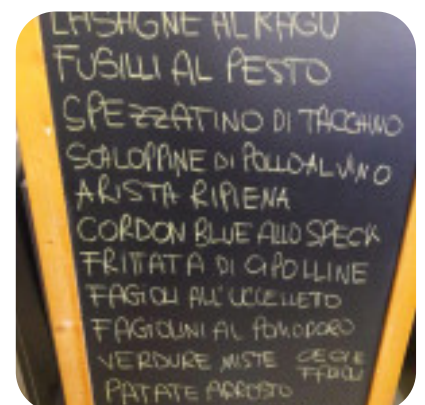 LASAGNE AL RAGU
FUSILLI AL PESTO
SPEZZATINO DI TACCHINO
SCALOPPINE DI POLLO AL VINO
ARISTA RIPIENA
CORDON BLUE ALLO SPECK
FRITTATA DI CIPOLLINE
FAGIOLI ALL'UCCELLETO
FAGIOLINI AL POMODORO
VERDURE MISTE
PATATE ARROSTO